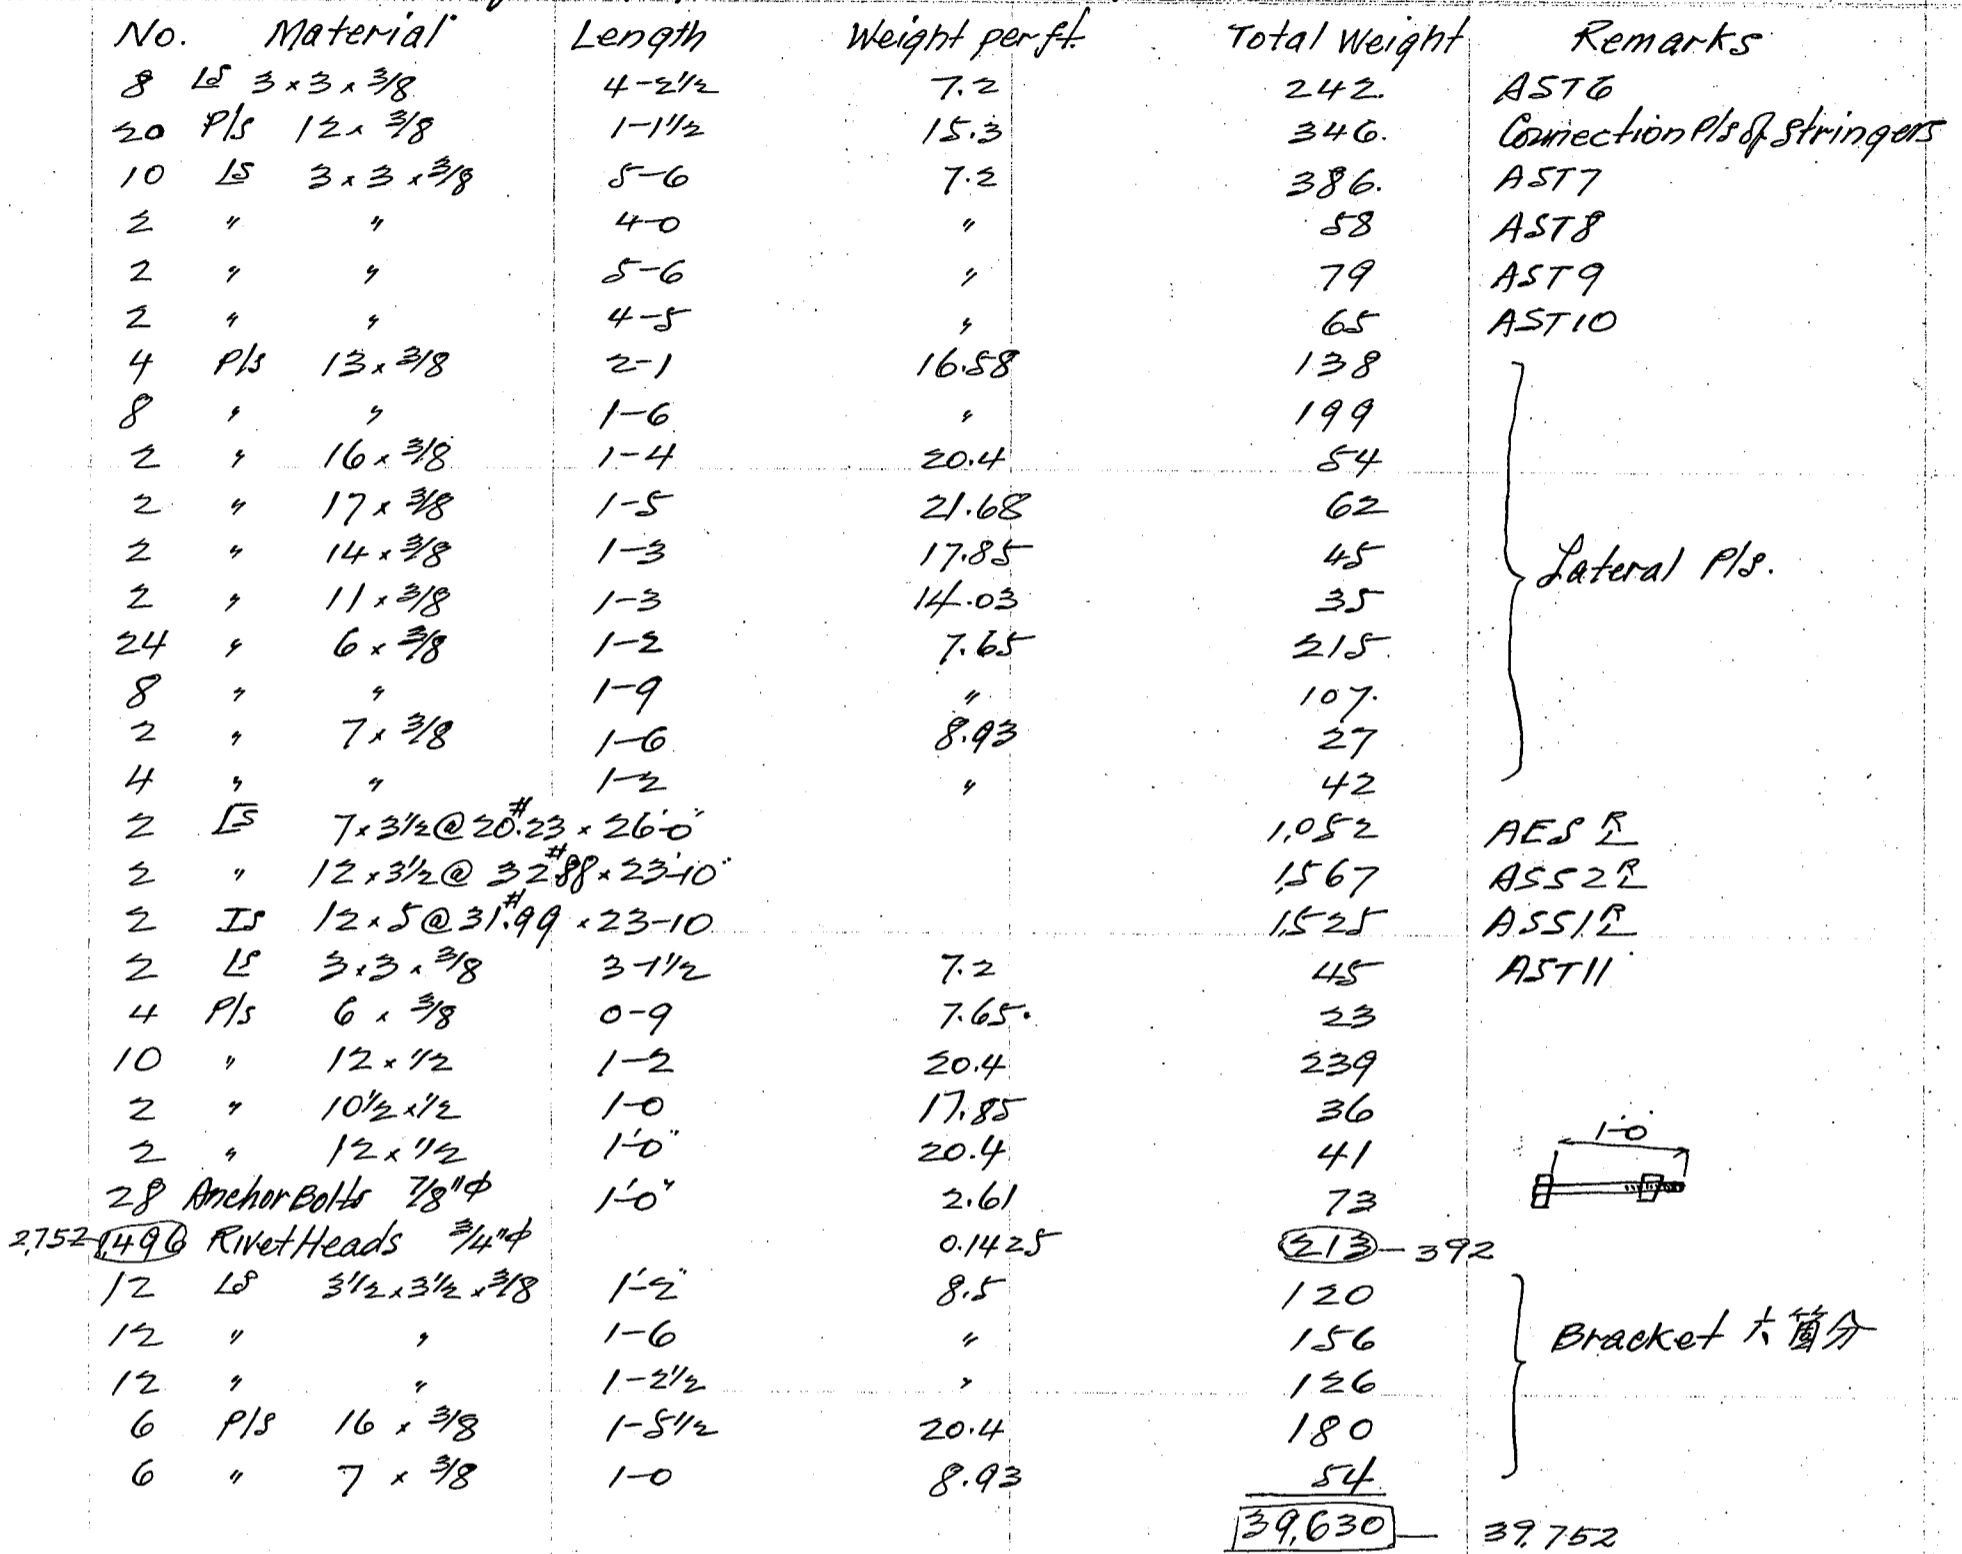 No. Material Length Weight per ft. Total Weight Remarks
8 Ls 3 x 3 x 3/8 4-2 1/2 7.2 242. AST6
20 Pls 12 x 3/8 1-1 1/2 15.3 346. Connection Pls of Stringers
10 Ls 3 x 3 x 3/8 5-6 7.2 386. AST7
2 " " 4-0 " 58 AST8
2 " " 5-6 " 79 AST9
2 " " 4-5 " 65 AST10
4 Pls 13 x 3/8 2-1 16.58 138
8 " " 1-6 " 199
2 " 16 x 3/8 1-4 20.4 54
2 " 17 x 3/8 1-5 21.68 62
2 " 14 x 3/8 1-3 17.85 45
Lateral Pls.
2 " 11 x 3/8 1-3 14.03 35
24 " 6 x 3/8 1-2 7.65 215.
8 " " 1-9 " 107.
2 " 7 x 3/8 1-6 8.93 27
4 " " 1-2 " 42
2 [s 7 x 3 1/2 @ 20.23# x 26'-0" 1,052 AES R L
2 " 12 x 3 1/2 @ 32.88# x 23'-10" 1,567 ASS2 R L
2 Is 12 x 5 @ 31.99# x 23-10 1,525 ASS1 R L
2 Ls 3 x 3 x 3/8 3-1 1/2 7.2 45 AST11
4 Pls 6 x 3/8 0-9 7.65. 23
10 " 12 x 1/2 1-2 20.4 239
2 " 10 1/2 x 1/2 1-0 17.85 36
1'-0"
2 " 12 x 1/2 1'-0" 20.4 41
28 Anchor Bolts 7/8"φ 1'-0" 2.61 73
2,752 1,496 Rivet Heads 3/4"φ 0.1425 213 - 392
12 Ls 3 1/2 x 3 1/2 x 3/8 1'-2" 8.5 120
12 " " 1-6 " 156 Bracket 六箇分
12 " " 1-2 1/2 " 126
6 Pls 16 x 3/8 1-5 1/2 20.4 180
6 " 7 x 3/8 1-0 8.93 54
39,630 — 39,752